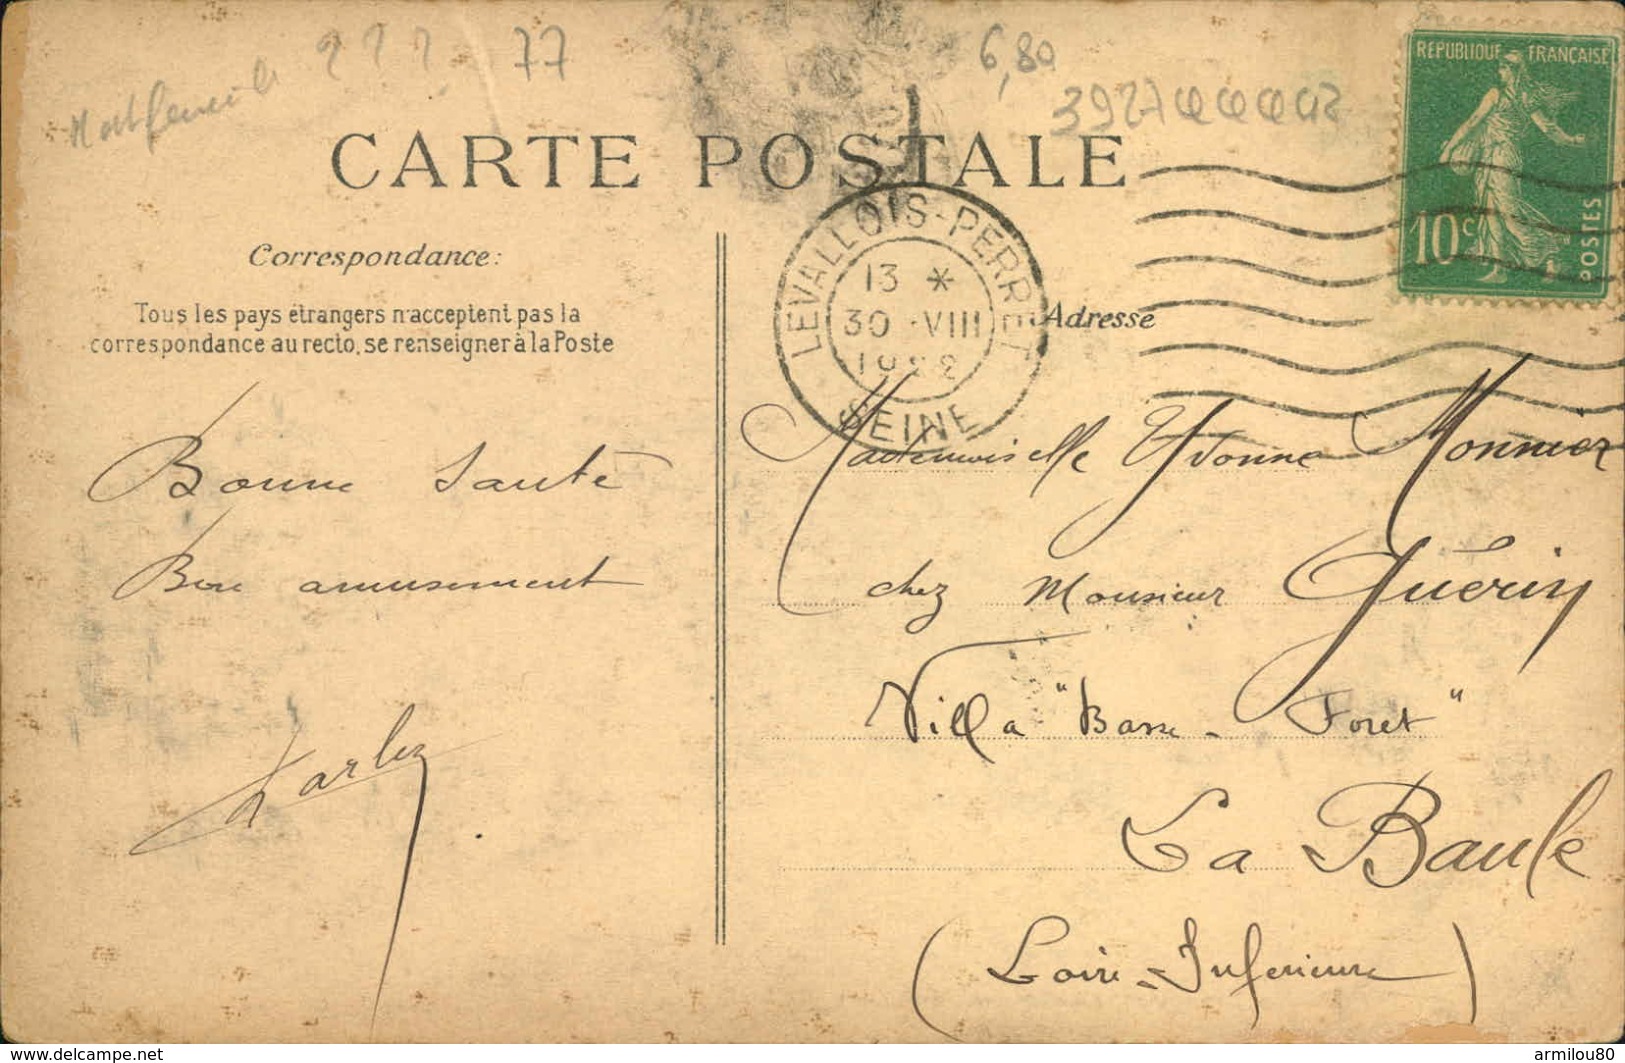 ? ? ? 77
6,80
RÉPUBLIQUE FRANÇAISE
10c
POSTES
CARTE POSTALE
LEVALLOIS-PERRET
13 *
30 VIII
SEINE
Correspondance:
Tous les pays étrangers n'acceptent pas la
correspondance au recto, se renseigner à la Poste
Bonne Santé
Bon amusement
Adresse
Mademoiselle Yvonne Monnier
chez Monsieur Guérin
Villa "Basse-Foret"
La Baule
(Loire-Inferieure)
www.delcampe.net
armilou80